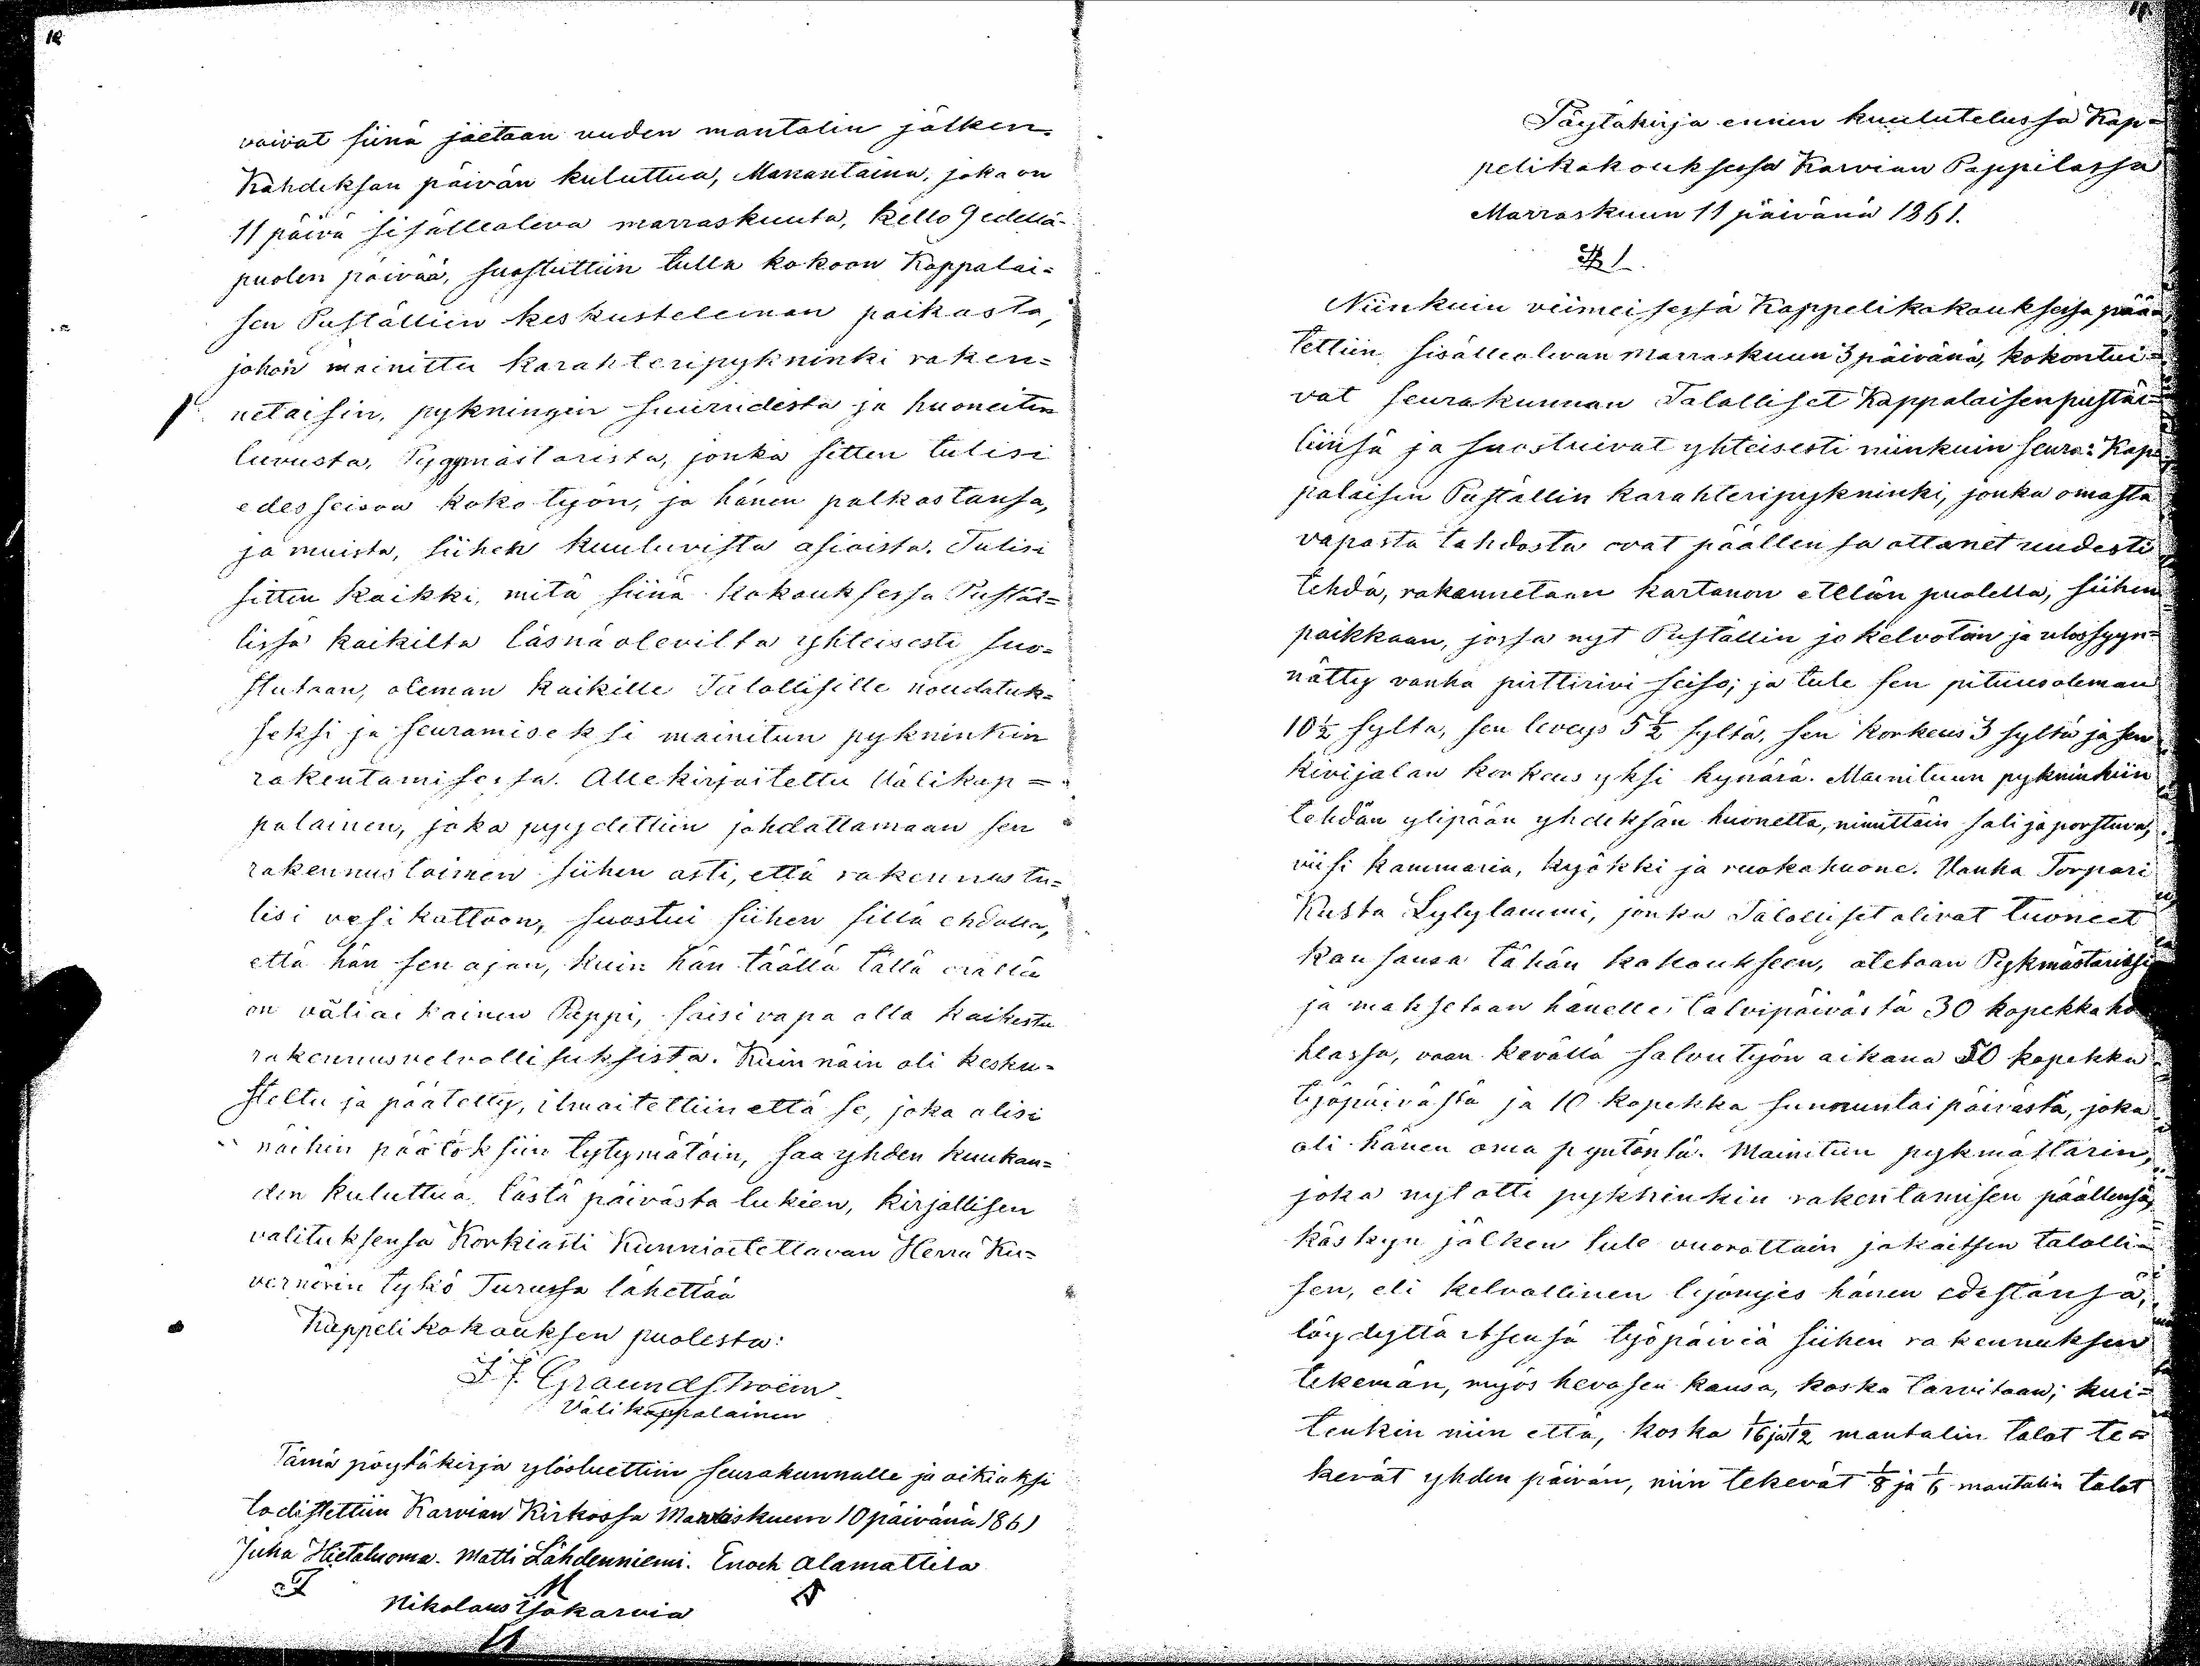 12
voivat siinä jaetaan uuden mantalin jälken.
Kahdeksan päivän kuluttua, Manantaina, joka on
11 päivä sisälleoleva marraskuuta, kello 9 edellä-
puolen päivää, suostuttiin tulla kokoon Kappalai=
sen Puställiin keskusteleman paikasta,
johon mainittu karahteripykninki raken=
netaisin, pykningin suurudesta ja huoneiten
luvusta, Pyggmästarista, jonka sitten tulisi
edesseisoa koko työn, ja hänen palkastansa,
ja muista, siihen kuuluvista asioista. Tulisi
sitten kaikki, mitä siinä kokouksessa Pustäl=
lissä kaikilta läsnäolevilta yhteisesti suo=
stutaan, oleman kaikille Talollisille noudatuk=
seksi ja seuramiseksi mainitun pykninkin
rakentamisessa. Allekirjoitettu Välikap=
palainen, joka pyydettiin johdattamaan sen
rakennustoimen siihen asti, että rakennus tu=
lisi vesikattoon, suostui siihen sillä ehdolla,
että hän sen ajan, kuin hän täällä tällä erällä
on väliaikainen Pappi, saisi vapa olla kaikesta
rakennusvelvollisuksista. Kuin näin oli kesku=
steltu ja päätetty, ilmoitettiin että se, joka olisi
näihin päätöksiin tytymätöin, saa yhden kuukau=
den kuluttua tästä päivästa lukien, kirjallisen
valituksensa Korkiasti Kunnioitettavan Herra Ku=
vernörin tykö Turussa lähettää
Kappelikokouksen puolesta:
J. F. Graundstroëm
Välikappalainen
Tämä pöytäkirja ylösluettiin seurakunnalle ja oikiaksi
todistettiin Karvian Kirkossa Marraskuun 10 päivänä 1861
Juha Hietaluoma. Matti Lähdenniemi. Enoch Alamattila
Nikolaus Isokarvia
Pöytäkirja ennen kuulutelussa Kap=
pelikokouksessa Karvian Pappilassa
Marraskuun 11 päivänä 1861.
§ 1.
Niinkuin viimeisessä Kappelikokouksessa pää=
tettiin sisälleolevan Marraskuun 3 päivänä, kokontui=
vat seurakunnan Talolliset Kappalaisen pustäl=
liinsä ja suostuivat yhteisesti niinkuin seura: Kap=
palaisen Puställin karahteripykninki, jonka omasta
vapasta tahdosta ovat päällensa ottanet uudesti
tehdä, rakannetaan kartanon etelän puolella, siihen
paikkaan, jossa nyt Puställin jo kelvotoin ja ulossyyn=
nätty vanha pirttirivi seiso; ja tule sen pituus oleman
10½ sylta, sen leveys 5½ syltä, sen korkeus 3 syltä ja sen
kivijalan korkeus yksi kynärä. Mainituun pykninkiin
tehdän ylipään yhdeksän huonetta, nimittäin sali ja porstuva,
viisi kammaria, kyökki ja ruokahuone. Vanha Torpari
Kusta Lylylammi, jonka Talolliset olivat tuoneet
kansansa tähän kokoukseen, otetaan Pykmästariksi
ja maksetaan hänelle, talvipäivästä 30 kopekka ho
heassa, vaan kevällä salvutyön aikana 50 kopekka
työpäivästä ja 10 kopekka sunnuntai päivästä, joka
oli hänen oma pyytönsä. Mainitun pykmästarin,
joka nyt otti pykninkin rakentamisen päällensä,
käskyn jälken tule vuorottain jokaitsen talolli=
sen, eli kelvollinen työmjes hänen edestänsä,
löydyttä itsensä työpäiviä siihen rakennuksen
tekemän, myös hevosen kansa, koska tarvitaan; kui=
tenkin niin että, koska 1/16 ja 1/12 mantalin talot te=
kevät yhden päivän, niin tekevät 1/8 ja 1/6 mantalin talot